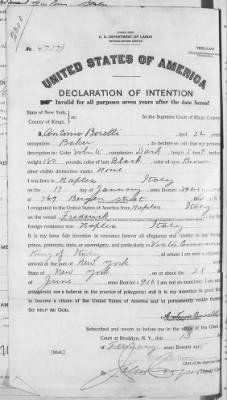 U. S. DEPARTMENT OF LABOR
NATURALIZATION SERVICE
No.
TRIPLICATE
UNITED STATES OF AMERICA
DECLARATION OF INTENTION
Invalid for all purposes seven years after the date hereof
State of New York,
County of Kings,
In the Supreme Court of Kings County.
I, Antonio Borelli, aged 22 years,
occupation Baker, do declare on oath that my personal
description is: Color White, complexion Dark, height 5 feet inches,
weight pounds, color of hair Black, color of eyes Brown
other visible distinctive marks None
I was born in Naples Italy
on the 13 day of January, anno Domini; I now reside
at Bergen Street
I emigrated to the United States of America from Naples Italy
on the vessel; my last
foreign residence was Naples Italy
It is my bona fide intention to renounce forever all allegiance and fidelity to any foreign
prince, potentate, state, or sovereignty, and particularly to Victor Emmanuel
King of Italy, of whom I am now a subject; I
arrived at the port of New York, in the
State of New York, on or about the 28 day
of June, anno Domini 1910; I am not an anarchist; I am not a
polygamist nor a believer in the practice of polygamy; and it is my intention in good faith
to become a citizen of the United States of America and to permanently reside therein:
SO HELP ME GOD.
Subscribed and sworn to before me in the office of the Clerk of
Court at Brooklyn, N. Y., this 13
[SEAL]